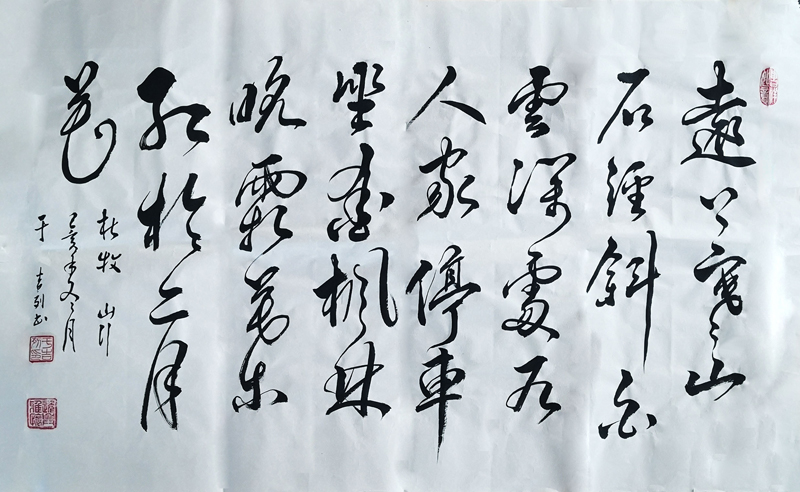 遠上寒山
石徑斜白
雲深處有
人家停車
坐愛楓林
晚霜葉
紅於二月
花
杜牧 山行
己亥年冬月
于吉列书